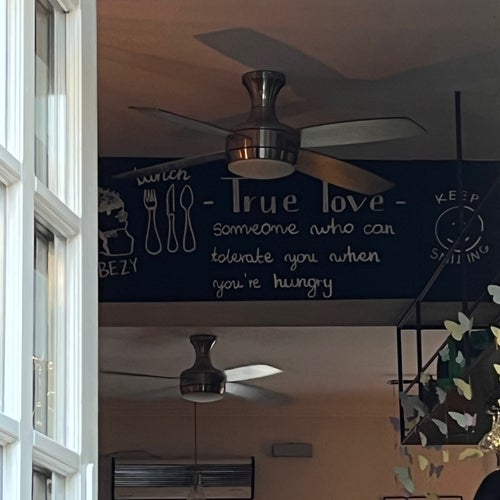 Lunch
BEZY
- True love -
someone who can
tolerate you when
you're hungry
KEEP
SMILING